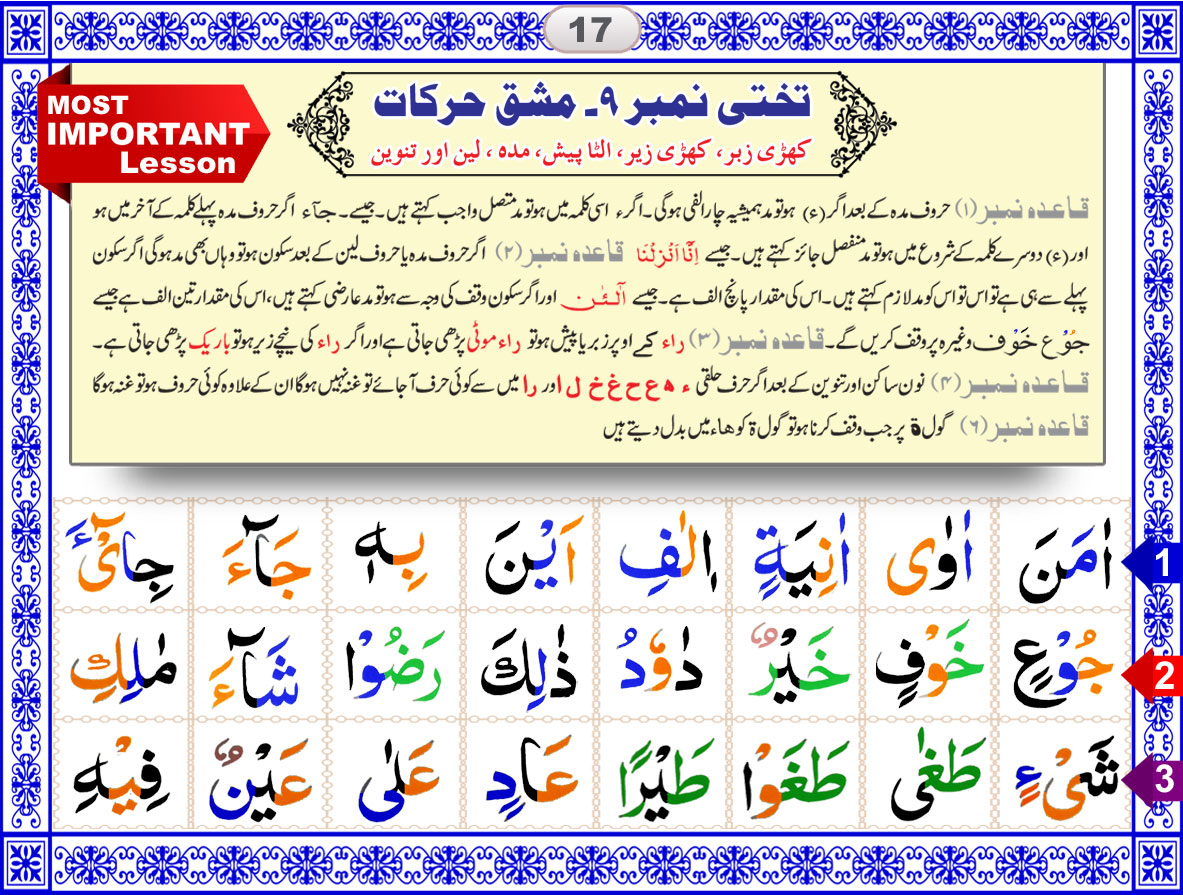 17
MOST
IMPORTANT
Lesson
تختی نمبر ۹۔ مشق حرکات
کھڑی زبر، کھڑی زیر، الٹا پیش، مدہ ، لین اور تنوین
قاعدہ نمبر (۱) حروف مدہ کے بعد اگر (ء) ہو تو مد ہمیشہ چار الفی ہوگی۔ اگر ء اسی کلمہ میں ہو تو مد متصل واجب کہتے ہیں۔ جیسے۔ جآء اگر حروف مدہ پہلے کلمہ کے آخر میں ہو
اور (ء) دوسرے کلمہ کے شروع میں ہو تو مد منفصل جائز کہتے ہیں۔ جیسے اِنَّاۤ اَنْزَلْنَا قاعدہ نمبر (۲) اگر حروف مدہ یا حروف لین کے بعد سکون ہو تو وہاں بھی مد ہوگی اگر سکون
پہلے سے ہی ہے تو اس تو اس کو مد لازم کہتے ہیں۔ اس کی مقدار پانچ الف ہے۔ جیسے آلْـٰٔنَ اور اگر سکون وقف کی وجہ سے ہو تو مد عارضی کہتے ہیں، اس کی مقدار تین الف ہے جیسے
جُوْع خَوْف وغیرہ پر وقف کریں گے۔ قاعدہ نمبر (۳) راء کے اوپر زبر یا پیش ہو تو راء موٹی پڑھی جاتی ہے اور اگر راء کی نیچے زیر ہو تو باریک پڑھی جاتی ہے۔
قاعدہ نمبر (۴) نون ساکن اور تنوین کے بعد اگر حرف حلقی ء ہ ع ح غ خ ل اور را میں سے کوئی حرف آ جائے تو غنہ نہیں ہوگا ان کے علاوہ کوئی حروف ہو تو غنہ ہوگا
قاعدہ نمبر (۶) گول ة پر جب وقف کرنا ہو تو گول ة کو ھاء میں بدل دیتے ہیں
اٰمَنَ اٰوٰی اٰنِيَةٍ اِلٰفِ اَيْنَ بِهٖ جَآءَ جِایْٓءَ 1
جُوْعٍ خَوْفٍ خَيْرٌ دٰوٗدُ ذٰلِكَ رَضُوْا شَآءَ مٰلِكِ 2
شَیْءٍ طَغٰی طَغَوْا طَيْرًا عَادٍ عَلٰی عَيْنٌ فِيْهِ 3